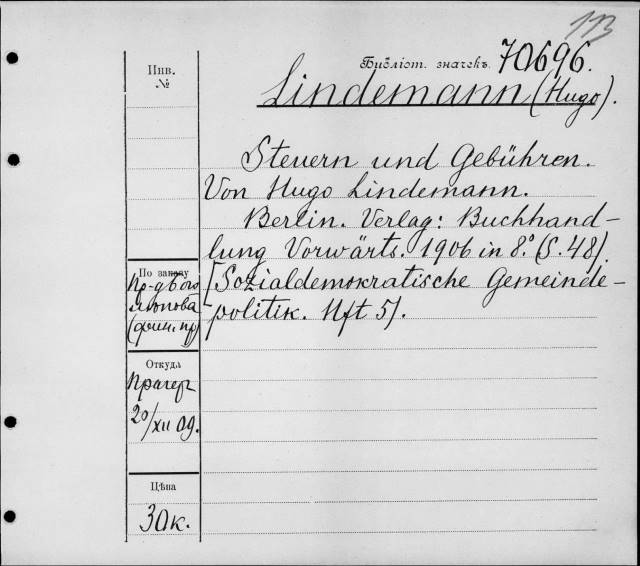 113
Библіот. значекъ 70696.
Lindemann (Hugo).
Инв.
№
Steuern und Gebühren.
Von Hugo Lindemann.
Berlin. Verlag: Buchhand-
lung Vorwärts. 1906 in 8.° (S. 48).
[Sozialdemokratische Gemeinde-
politik. Hft 5].
По заказу
(фин. пр)
Откуда
Прагеръ
20/XII 09.
Цѣна
30 к.